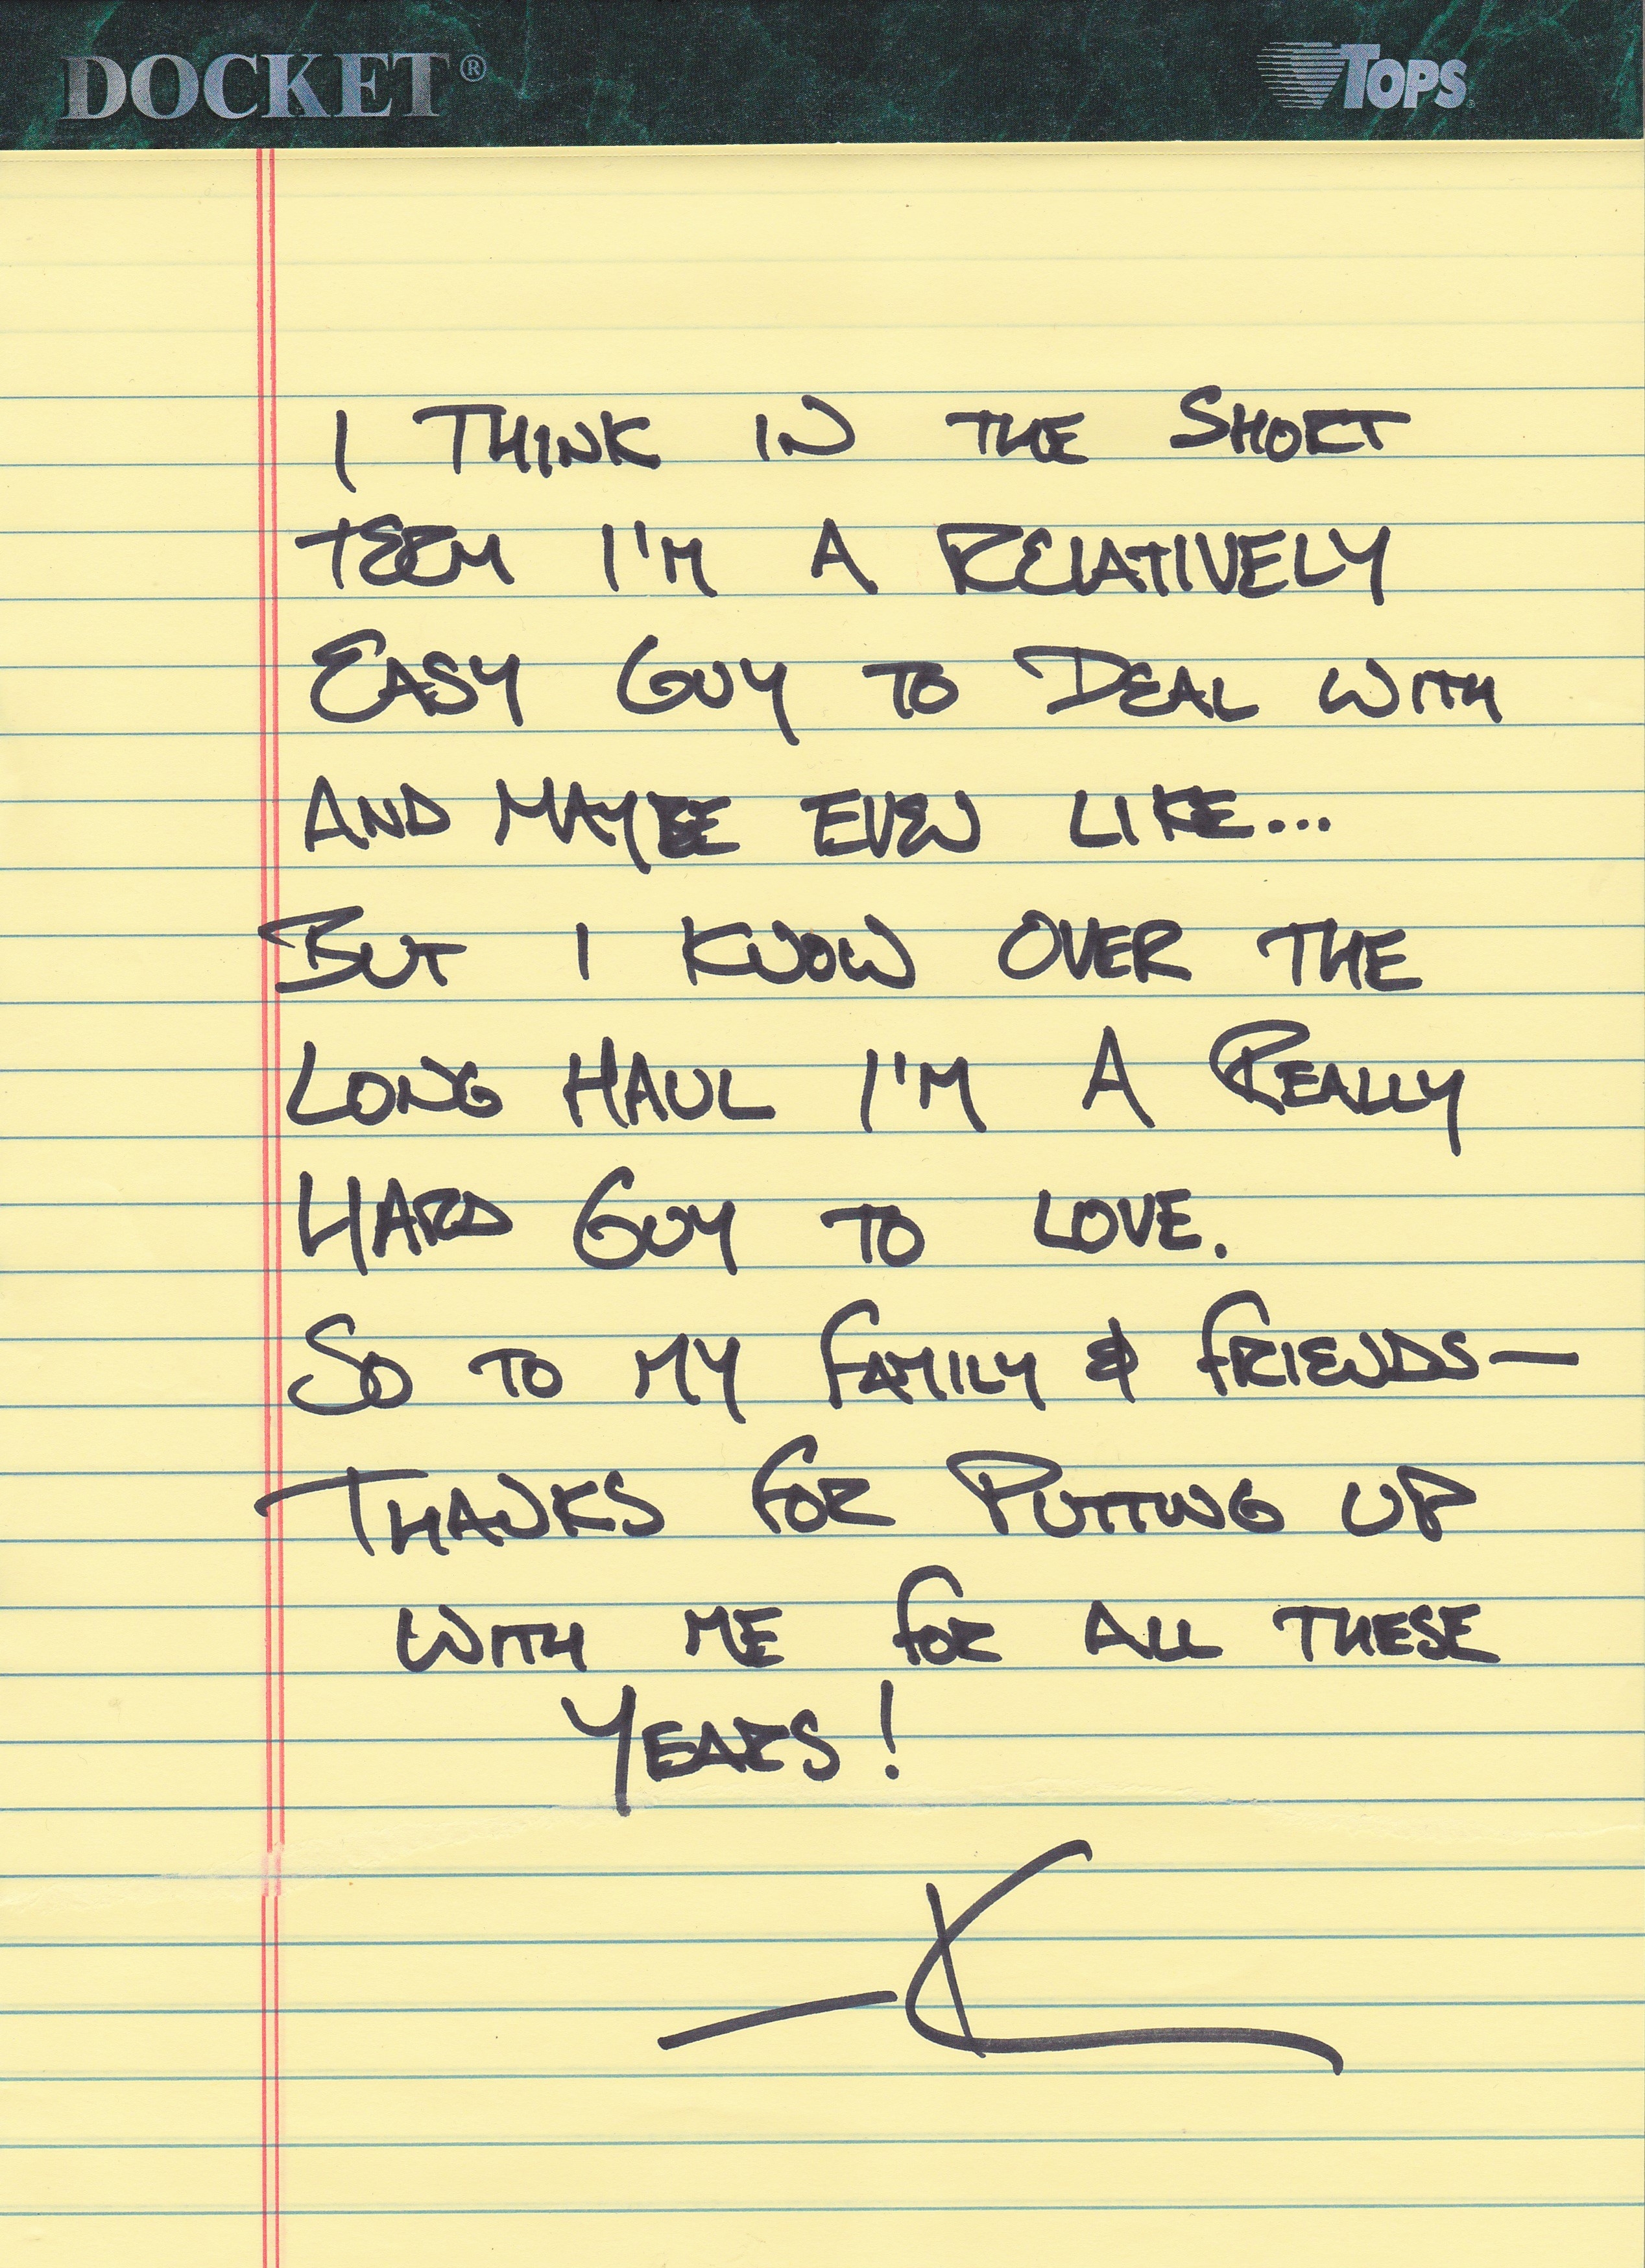 DOCKET® TOPS
I THINK IN THE SHORT
TERM I'M A RELATIVELY
EASY GUY TO DEAL WITH
AND MAYBE EVEN LIKE...
BUT I KNOW OVER THE
LONG HAUL I'M A REALLY
HARD GUY TO LOVE.
SO TO MY FAMILY & FRIENDS—
THANKS FOR PUTTING UP
WITH ME FOR ALL THESE
YEARS!
—K